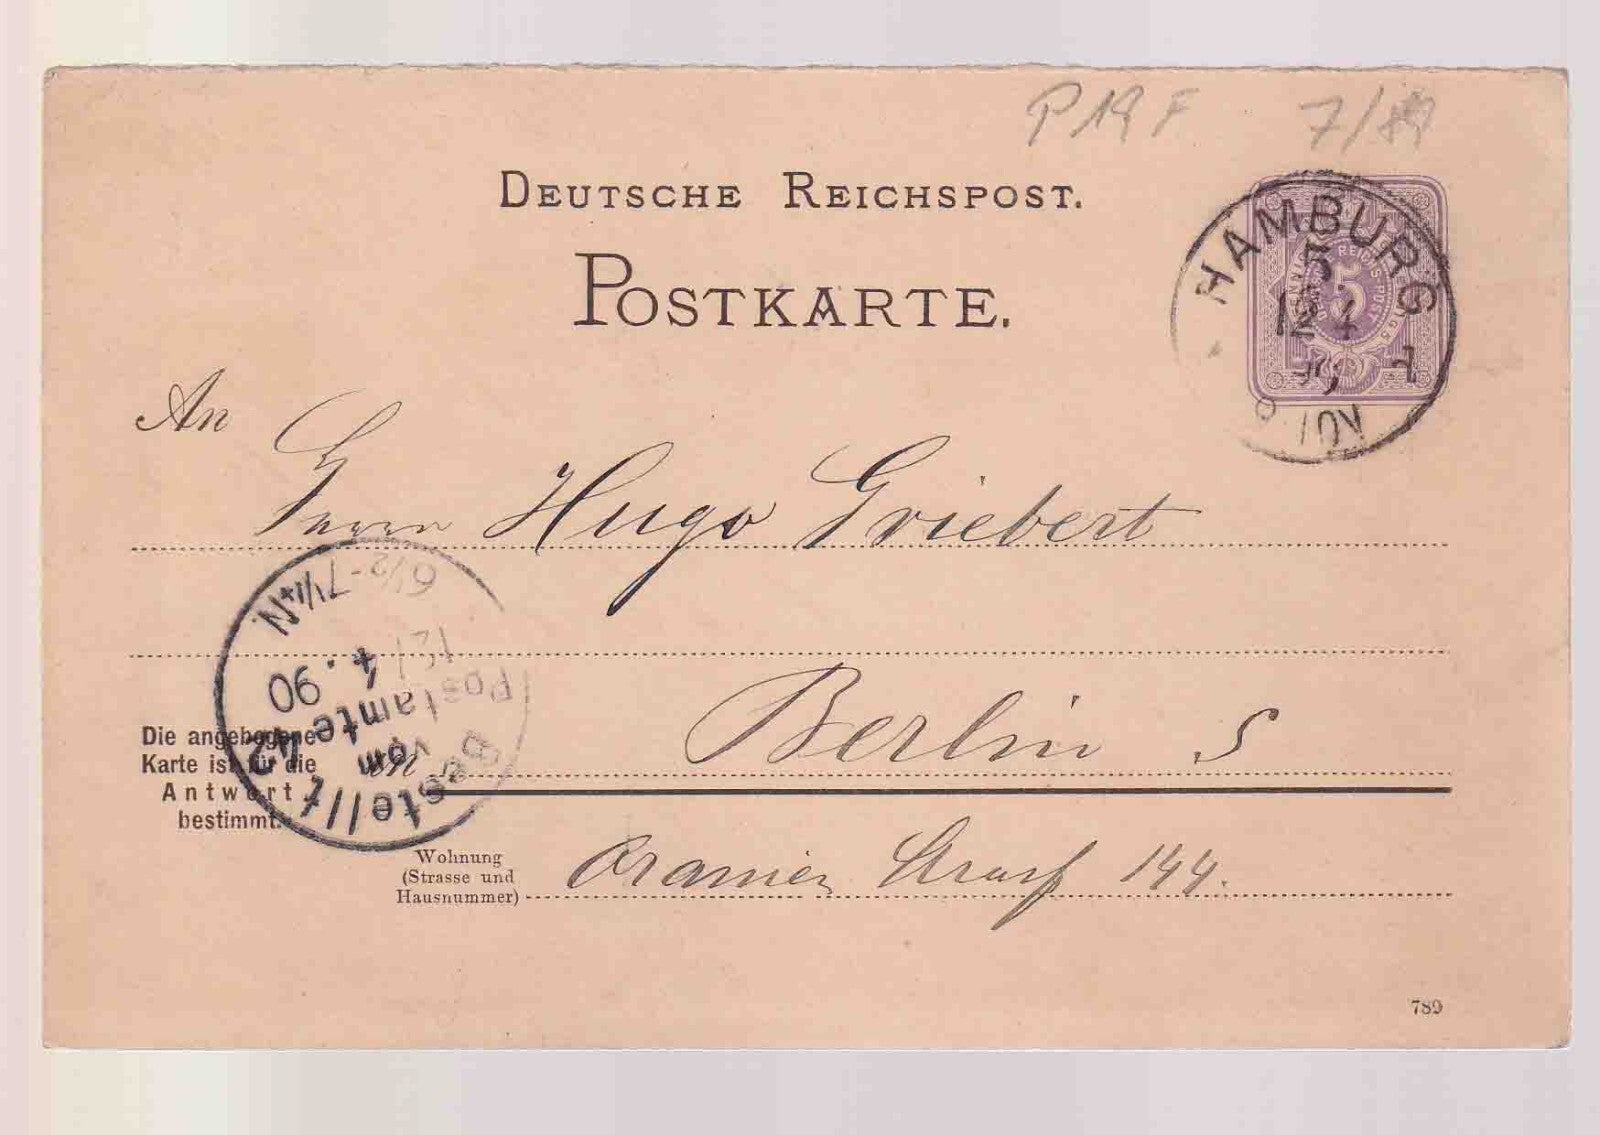 P 19 F 7/89
DEUTSCHE REICHSPOST.
POSTKARTE.
HAMBURG
5
12 4
90
1
5
An
Herrn Hugo Griebert
6½-7½N.
12/4.90
Bestellt
vom
Postamte
42
Die angebogene
Karte ist für die
Antwort
bestimmt.
in Berlin S
Wohnung
(Strasse und
Hausnummer)
Oranien Strasse 144.
789